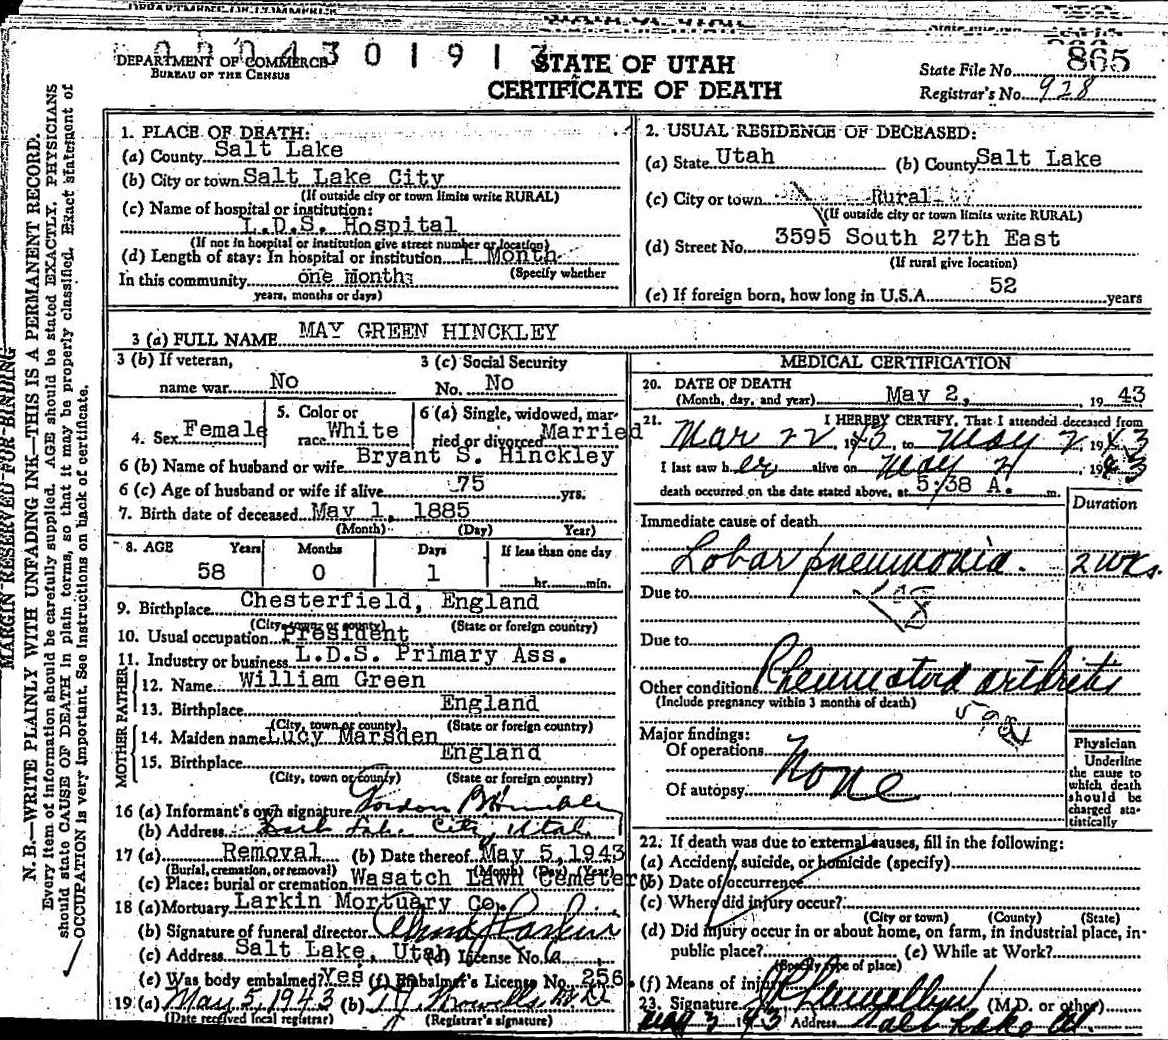 DEPARTMENT OF COMMERCE
BUREAU OF THE CENSUS
0 2 0 4 3 0 1 9 1 3
STATE OF UTAH
CERTIFICATE OF DEATH
State File No. 865
Registrar's No. 928
MARGIN RESERVED FOR BINDING
N. B.—WRITE PLAINLY WITH UNFADING INK—THIS IS A PERMANENT RECORD.
Every item of information should be carefully supplied. AGE should be stated EXACTLY. PHYSICIANS
should state CAUSE OF DEATH in plain terms, so that it may be properly classified. Exact statement of
OCCUPATION is very important. See instructions on back of certificate.
1. PLACE OF DEATH:
(a) County Salt Lake
(b) City or town Salt Lake City
(If outside city or town limits write RURAL)
(c) Name of hospital or institution:
L.D.S. Hospital
(If not in hospital or institution give street number or location)
(d) Length of stay: In hospital or institution 1 Month
(Specify whether
In this community one month
years, months or days)
2. USUAL RESIDENCE OF DECEASED:
(a) State Utah (b) County Salt Lake
(c) City or town Rural
(If outside city or town limits write RURAL)
(d) Street No. 3595 South 27th East
(If rural give location)
(e) If foreign born, how long in U.S.A. 52 years
3 (a) FULL NAME MAY GREEN HINCKLEY
3 (b) If veteran, 3 (c) Social Security
name war No No. No
4. Sex Female 5. Color or race White 6 (a) Single, widowed, married or divorced Married
6 (b) Name of husband or wife Bryant S. Hinckley
6 (c) Age of husband or wife if alive 75 yrs.
7. Birth date of deceased May 1, 1885
(Month) (Day) Year)
8. AGE Years Months Days If less than one day
58 0 1 hr. min.
9. Birthplace Chesterfield, England
(City, town or county) (State or foreign country)
10. Usual occupation President
11. Industry or business L.D.S. Primary Ass.
FATHER
12. Name William Green
13. Birthplace England
(City, town or county) (State or foreign country)
MOTHER
14. Maiden name Lucy Marsden
15. Birthplace England
(City, town or county) (State or foreign country)
16 (a) Informant's own signature Gordon B Hinckley
(b) Address Salt Lake City, Utah
17 (a) Removal (b) Date thereof May 5, 1943
(Burial, cremation, or removal) (Month) (Day) (Year)
(c) Place: burial or cremation Wasatch Lawn Cemetery
18 (a) Mortuary Larkin Mortuary Co.
(b) Signature of funeral director
(c) Address Salt Lake, Utah (d) License No.
(e) Was body embalmed? Yes (f) Embalmer's License No. 256
19 (a) May 3, 1943 (b) T J Howells M D
(Date received local registrar) (Registrar's signature)
MEDICAL CERTIFICATION
20. DATE OF DEATH
(Month, day, and year) May 2, 19 43
21. I HEREBY CERTIFY, That I attended deceased from
Mar 22 1943, to May 2, 1943
I last saw her alive on May 2, 1943
death occurred on the date stated above, at 5:38 A. m.
Duration
Immediate cause of death
Lobar pneumonia. 2 wks.
Due to 108
Due to
Other conditions Rheumatoid arthritis
(Include pregnancy within 3 months of death)
Major findings:
Of operations None
Of autopsy
Physician
Underline
the cause to
which death
should be
charged sta-
tistically
22. If death was due to external causes, fill in the following:
(a) Accident, suicide, or homicide (specify)
(b) Date of occurrence
(c) Where did injury occur?
(City or town) (County) (State)
(d) Did injury occur in or about home, on farm, in industrial place, in
public place? (e) While at Work?
(Specify type of place)
(f) Means of injury
23. Signature (M.D. or other)
May 3 1943 Address Salt Lake